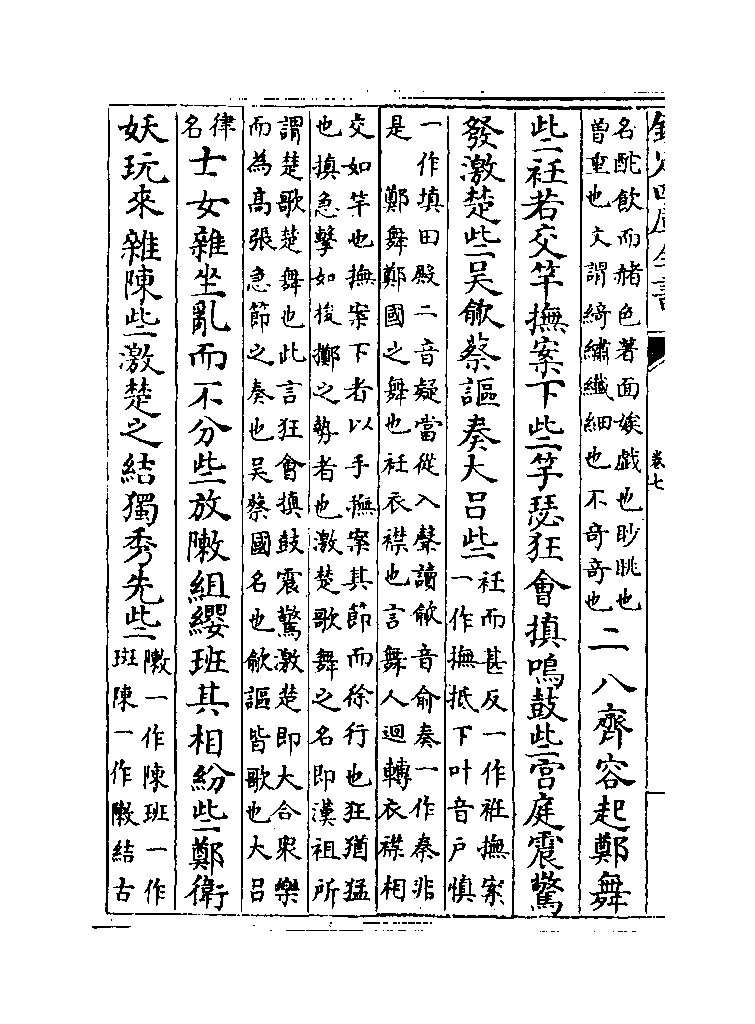 欽定四庫全書
卷七
名酡飲而赭色著面娭戲也眇眺也
曽重也文謂綺繡纎細也不竒竒也
二八齊容起鄭舞
些衽若交竿撫案下些竽瑟狂會搷鳴鼓些宫庭震驚
發激楚些吳歈蔡謳奏大吕些
衽而甚反一作袵撫案
一作撫抵下叶音戸慎
一作填田殿二音疑當從入聲讀歈音俞奏一作秦非
是　鄭舞鄭國之舞也衽衣襟也言舞人迴轉衣襟相
交如竿也撫案下者以手撫案其節而徐行也狂猶猛
也搷急擊如梭擲之勢者也激楚歌舞之名即漢祖所
謂楚歌楚舞也此言狂會搷鼓震驚激楚即大合衆樂
而為髙張急節之奏也吳蔡國名也歈謳皆歌也大吕
律
名
士女雜坐亂而不分些放敶組纓班其相紛些鄭衛
妖玩來雜陳些激楚之結獨秀先些
敶一作陳班一作
斑陳一作敶結古